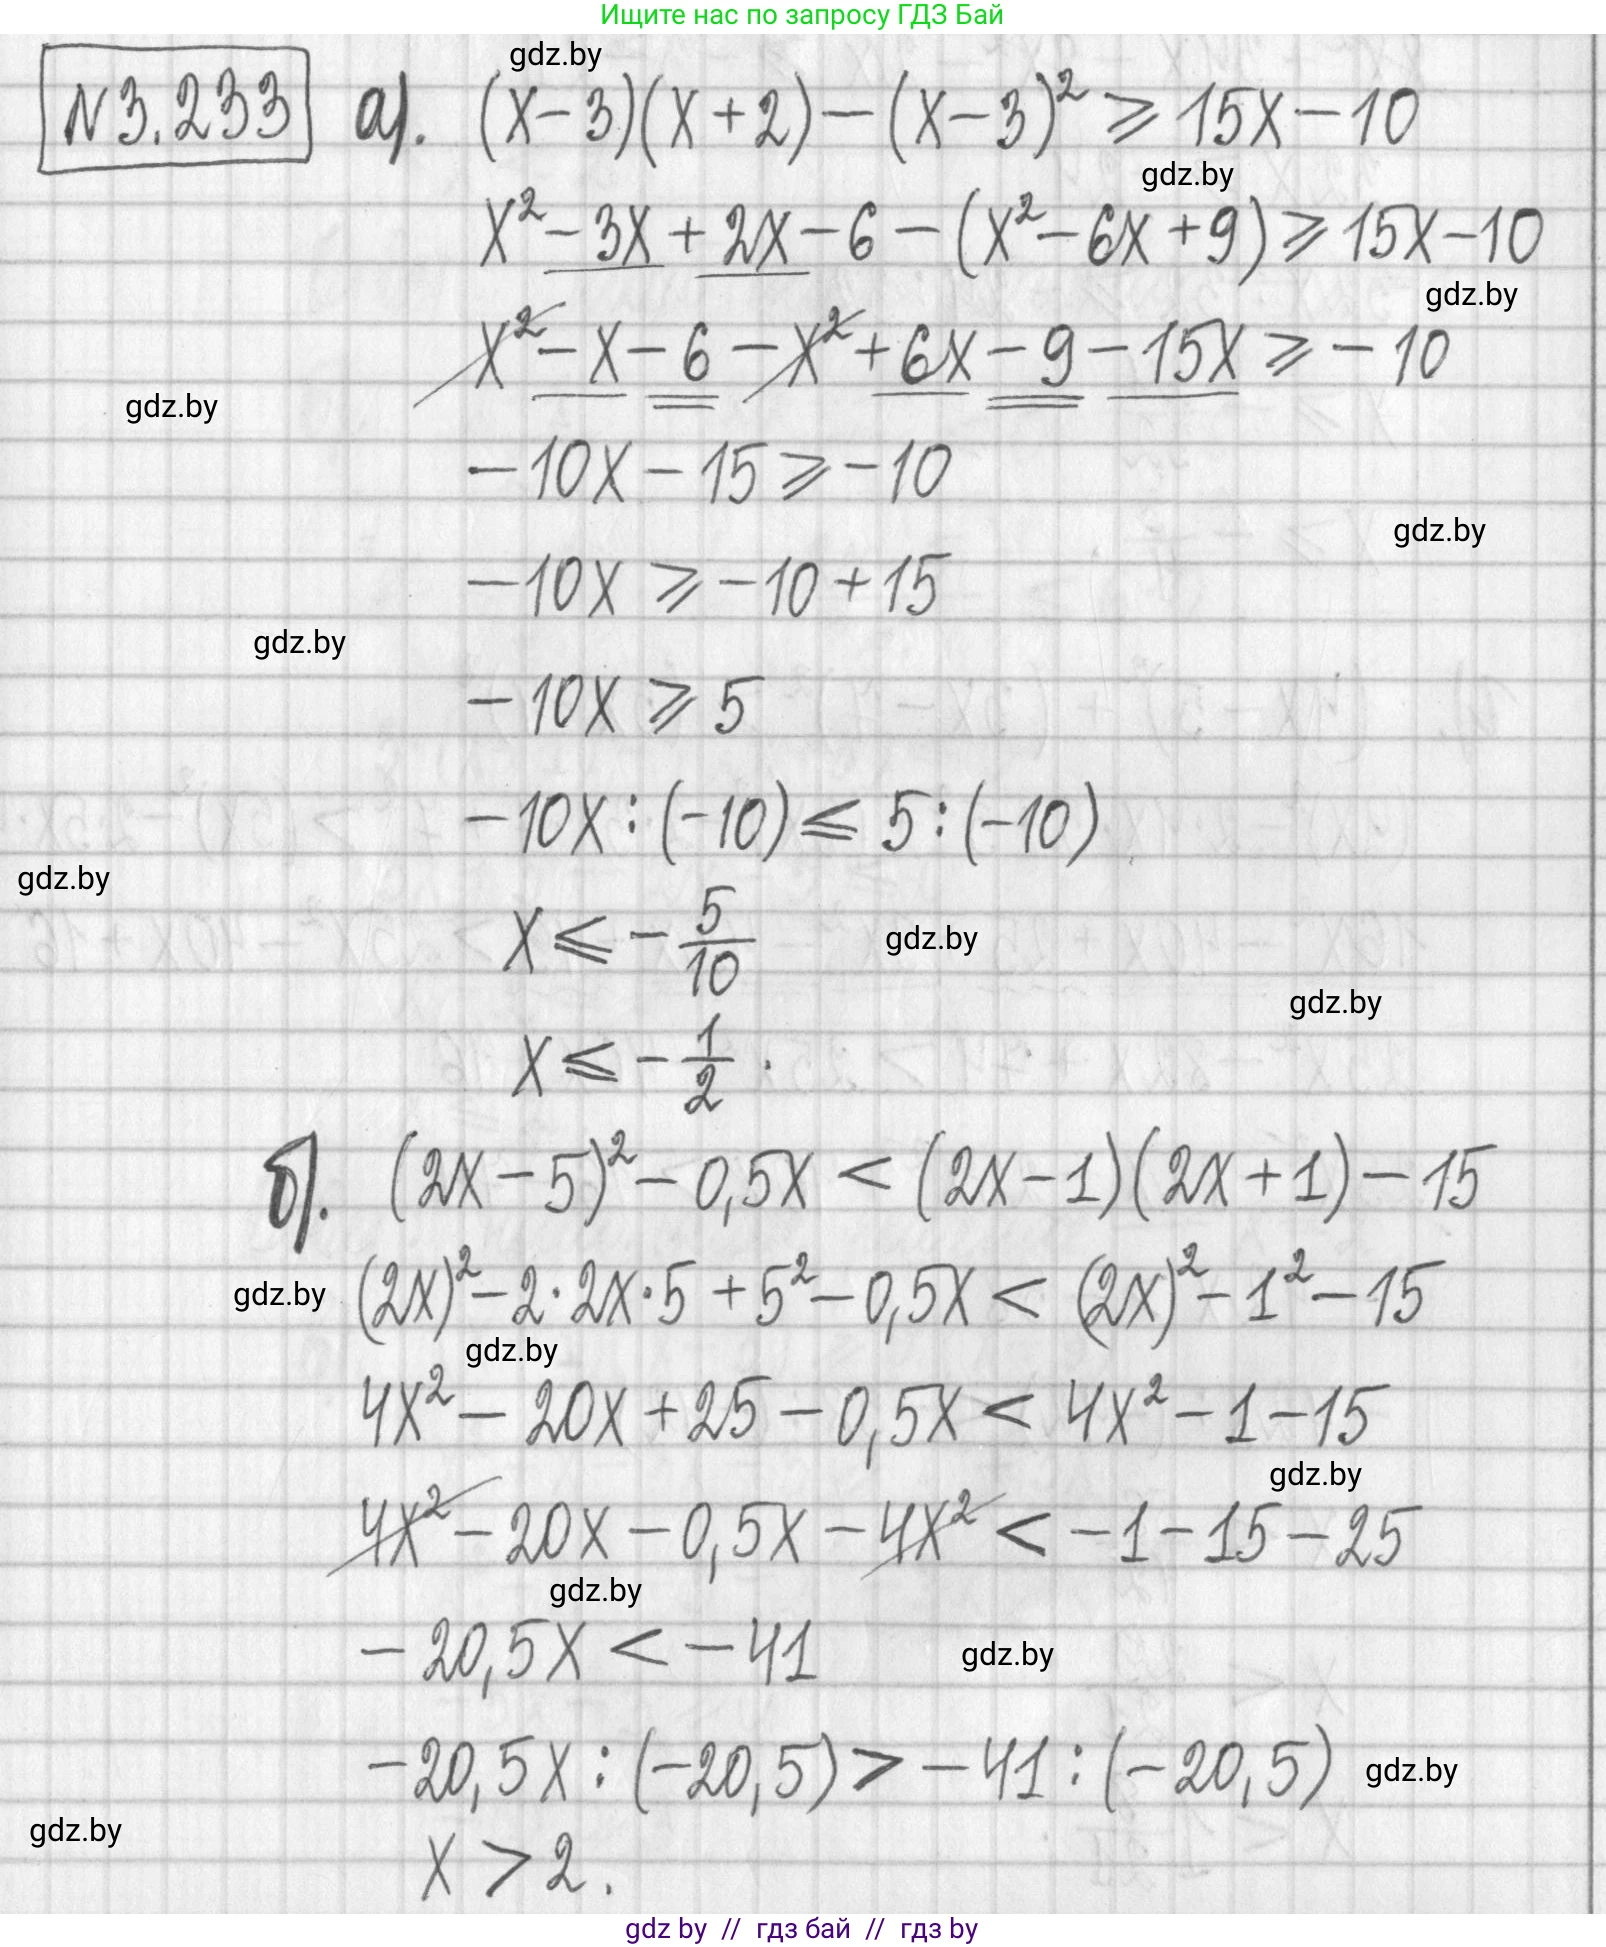 Ищите нас по запросу ГДЗ Бай
gdz.by
№3.233 а). (x-3)(x+2)-(x-3)² ⩾ 15x-10
gdz.by
x²-3x+2x-6-(x²-6x+9) ⩾ 15x-10
gdz.by
x²-x-6-x²+6x-9-15x ⩾ -10
gdz.by
-10x-15 ⩾ -10
gdz.by
-10x ⩾ -10+15
gdz.by
-10x ⩾ 5
-10x:(-10) ⩽ 5:(-10)
gdz.by
x ⩽ -5/10
gdz.by
gdz.by
x ⩽ -1/2.
б). (2x-5)²-0,5x < (2x-1)(2x+1)-15
gdz.by (2x)²-2·2x·5+5²-0,5x < (2x)²-1²-15
gdz.by
4x²-20x+25-0,5x < 4x²-1-15
gdz.by
4x²-20x-0,5x-4x² < -1-15-25
gdz.by
-20,5x < -41 gdz.by
-20,5x:(-20,5) > -41:(-20,5) gdz.by
gdz.by
x > 2.
gdz by // гдз бай // гдз by